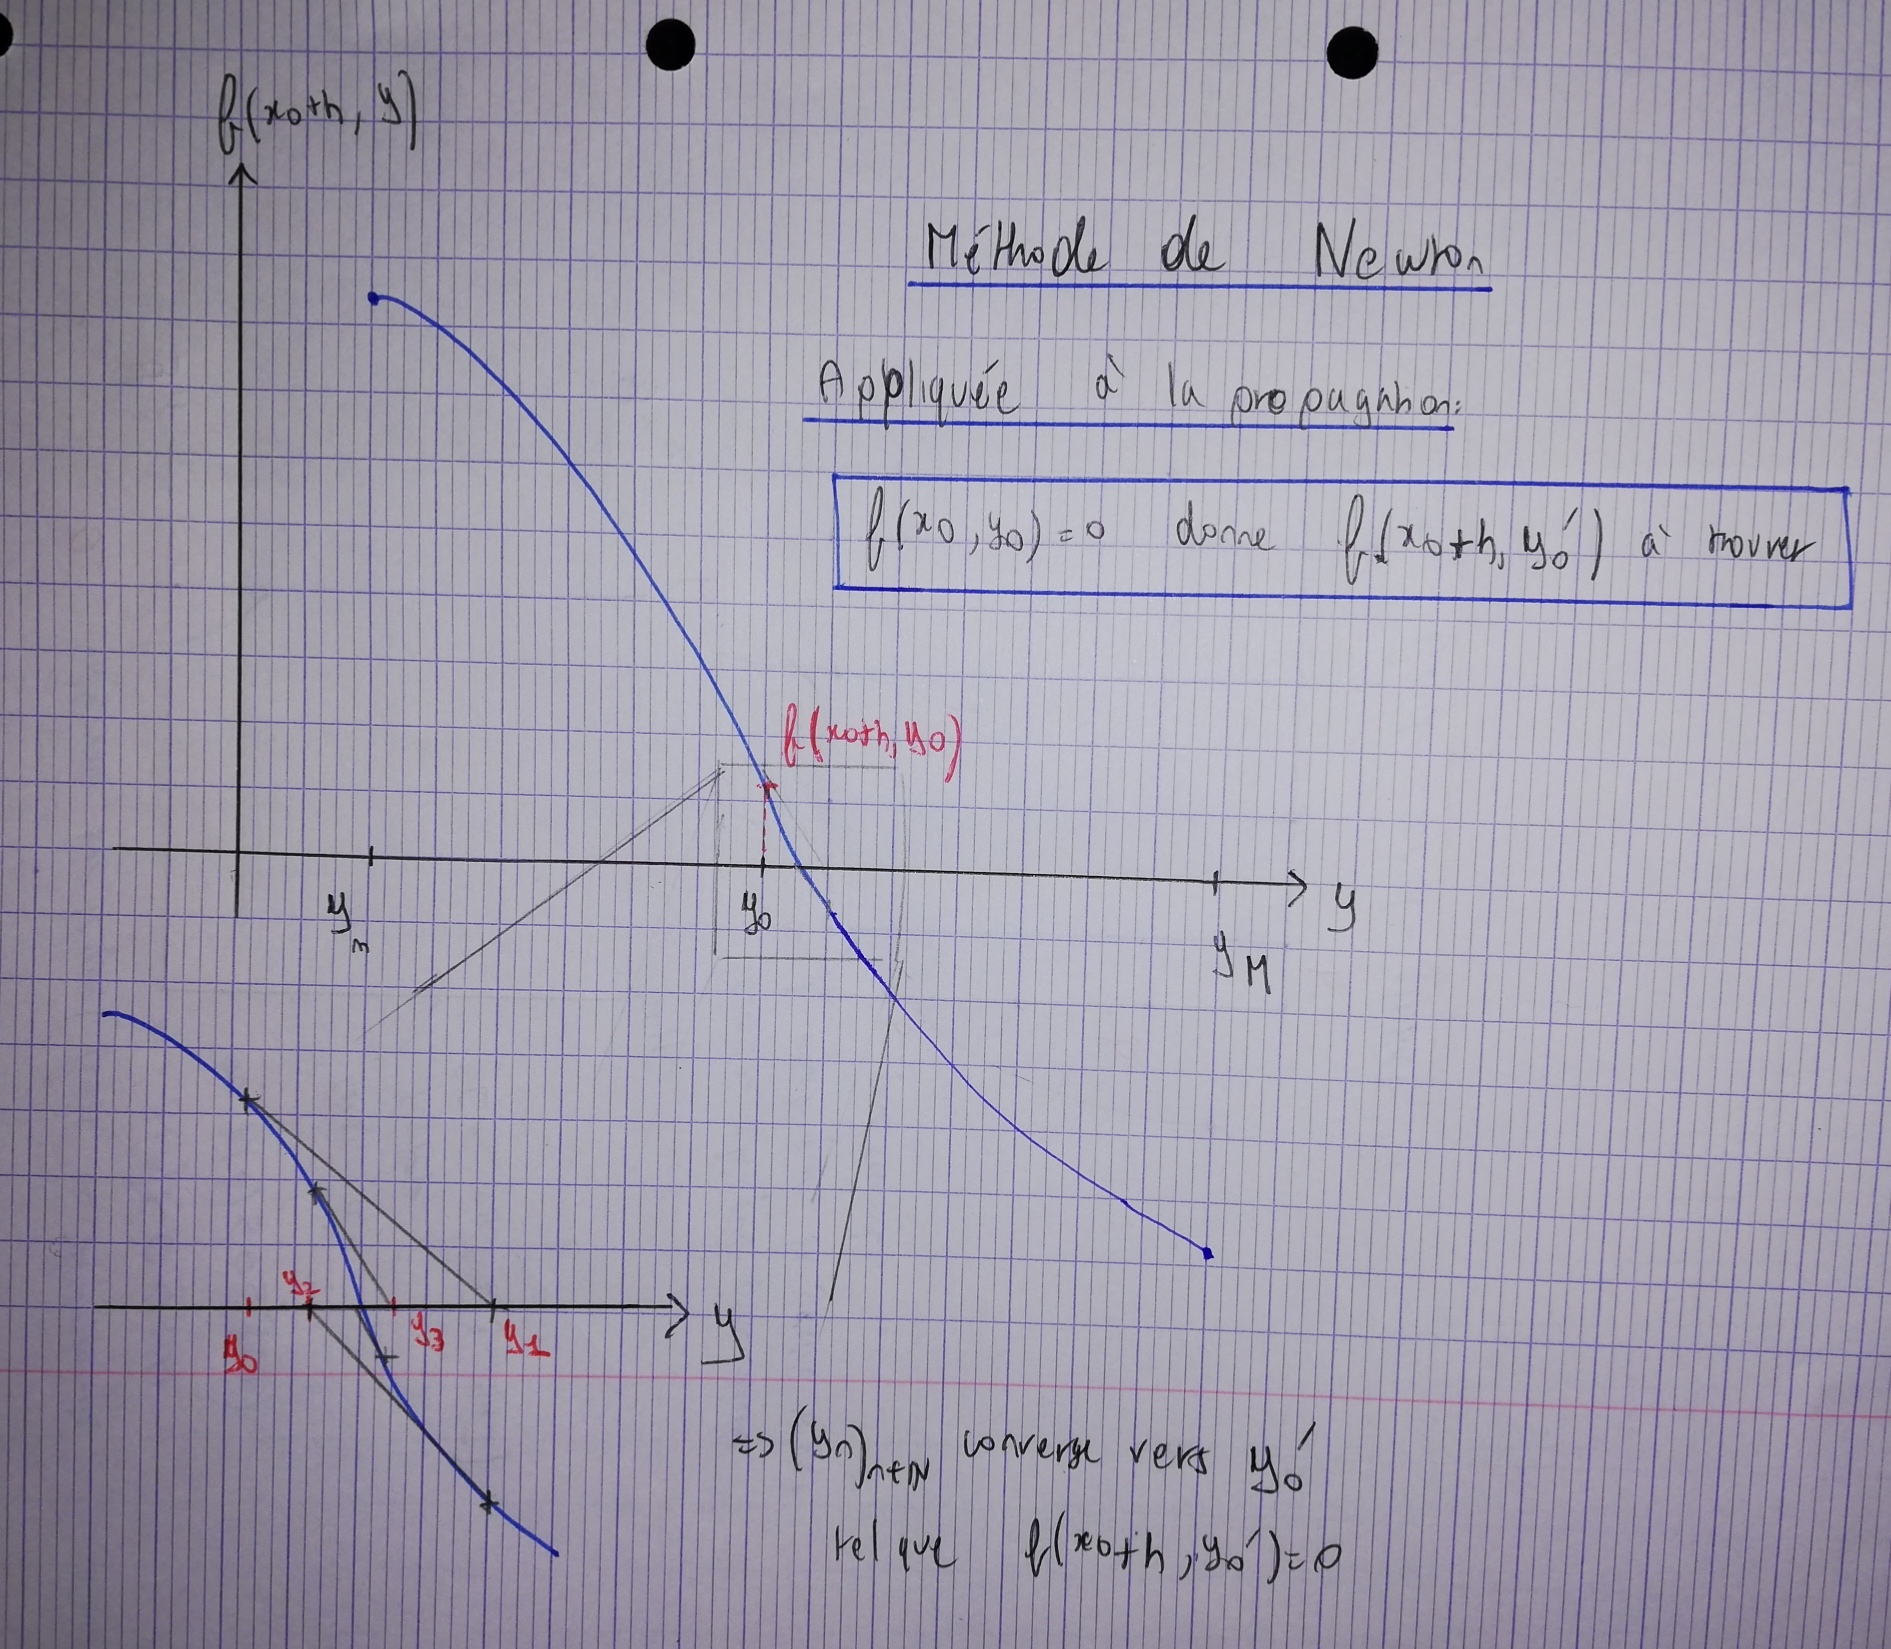 f(x₀+h, y)
Méthode de Newton
Appliquée à la propagation:
f(x₀, y₀) = 0 donne f(x₀+h, y₀') à trouver
f(x₀+h, y₀)
yₘ
y₀
y_M
y
y₂
y₀
y₃
y₁
y
=> (yₙ)ₙ∈ℕ converge vers y₀'
tel que f(x₀+h, y₀') = 0